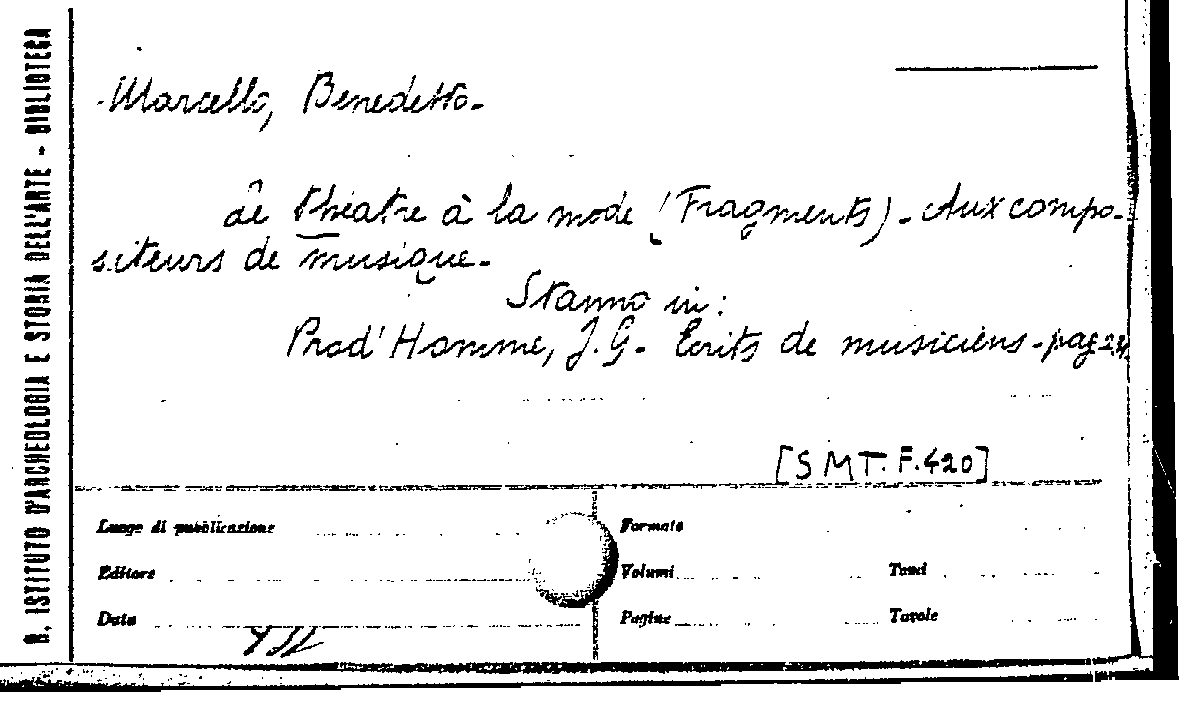 R. ISTITUTO D'ARCHEOLOGIA E STORIA DELL'ARTE - BIBLIOTECA
Marcello, Benedetto-
de théatre à la mode (Fragments) - Aux compo-
siteurs de musique.
Stanno in:
Prod'Homme, J.G- Ecrits de musiciens - pag
[SMT. F. 420]
Luogo di pubblicazione
Formato
Editore
Volumi
Tomi
Data
Pagine
Tavole